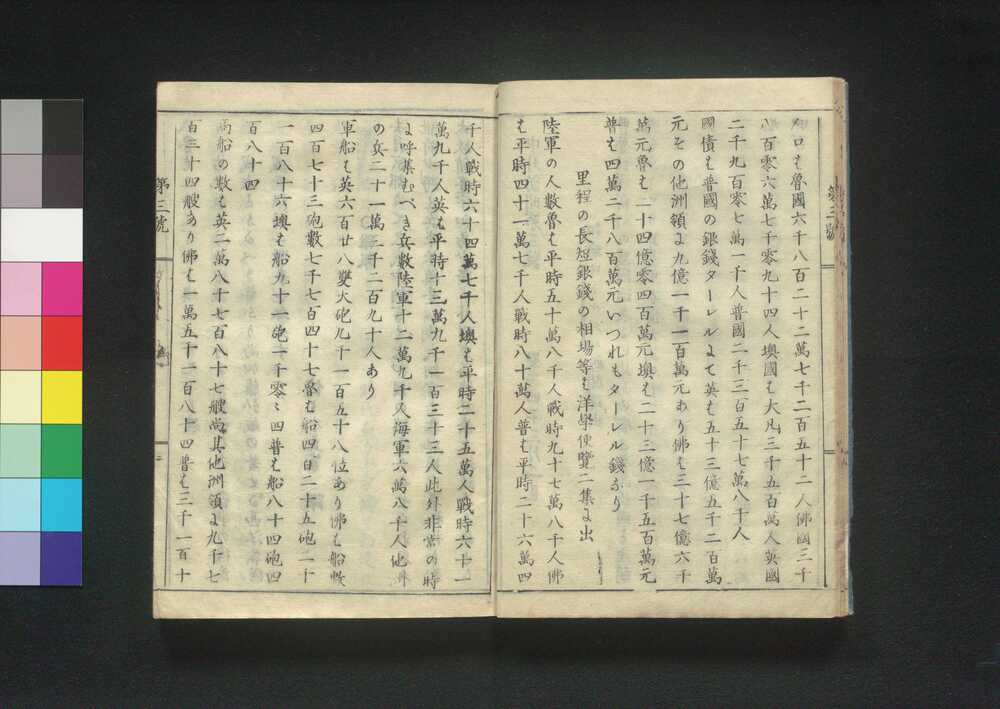 人口ハ魯國六千八百二十二萬七千二百五十二人佛國三千
八百零六萬七千零九十四人墺國ハ大凡三千五百萬人英國
二千九百零七萬一千人普國二千三百五十七萬八千人
國債ハ普國の銀錢ターレルにて英ハ五十三億五千二百萬
元その他洲領に九億一千一百萬元あり佛ハ三十七億六千
萬元魯ハ二十四億零四百萬元墺ハ二十三億一千五百萬元
普ハ四萬二千八百萬元いつれもターレル錢なり
里程の長短銀錢の相場等ハ洋學便覽二集に出
陸軍の人數魯ハ平時五十萬八千人戰時九十七萬八千人佛
ハ平時四十一萬七千人戰時八十萬人普ハ平時二十六萬四
千人戰時六十四萬七千人墺ハ平時二十五萬人戰時六十一
萬九千人英ハ平時十三萬九千一百三十三人此外非常の時
に呼集むべき兵數陸軍十二萬九千人海軍六萬八千人他
の兵二十一萬三千二百九十人あり
軍船ハ英六百廿八雙火砲九千一百五十八位あり佛ハ船數
四百七十三砲數七千七百四十七魯ハ船四百二十五砲二千
一百八十六墺ハ船九十一砲一千零〻四普ハ船八十四砲四
百八十四
商船の數ハ英二萬八千七百八十七艘尚其他洲領に九千七
百三十四艘あり佛ハ一萬五千一百八十四普ハ三千一百十
第三號